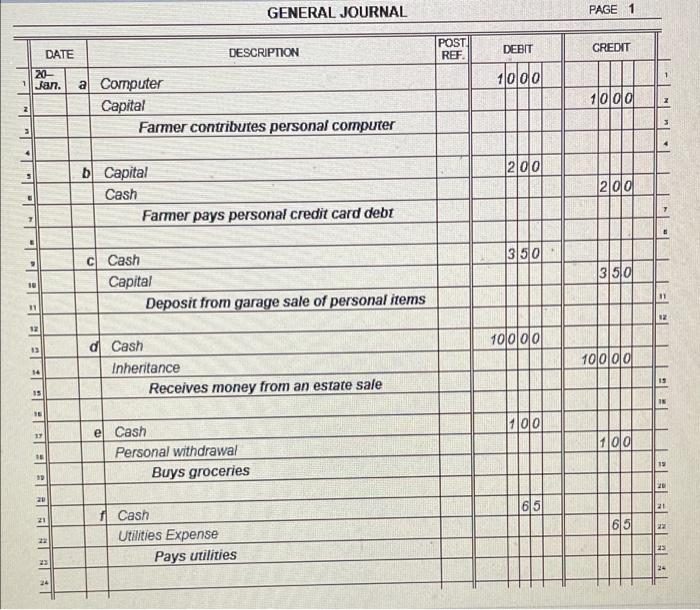 GENERAL JOURNAL PAGE 1
DATE DESCRIPTION POST. REF. DEBIT CREDIT
1 20– Jan. a Computer 1000 1
2 Capital 1000 2
3 Farmer contributes personal computer 3
4 4
5 b Capital 200
6 Cash 200
7 Farmer pays personal credit card debt 7
8 8
9 c Cash 350
10 Capital 350
11 Deposit from garage sale of personal items 11
12 12
13 d Cash 10000
14 Inheritance 10000
15 Receives money from an estate sale 15
16 16
17 e Cash 100
18 Personal withdrawal 100
19 Buys groceries 19
20 20
21 f Cash 65 21
22 Utilities Expense 65 22
23 Pays utilities 23
24 24